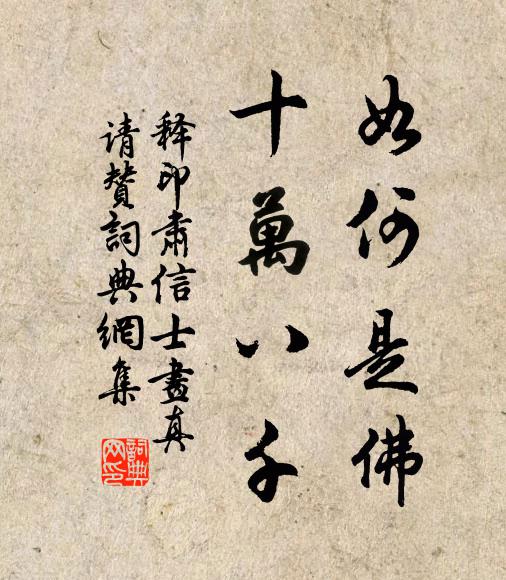 如何是佛
十萬八千
释印肃信士畫真
请贊詞典網集
詞典網印